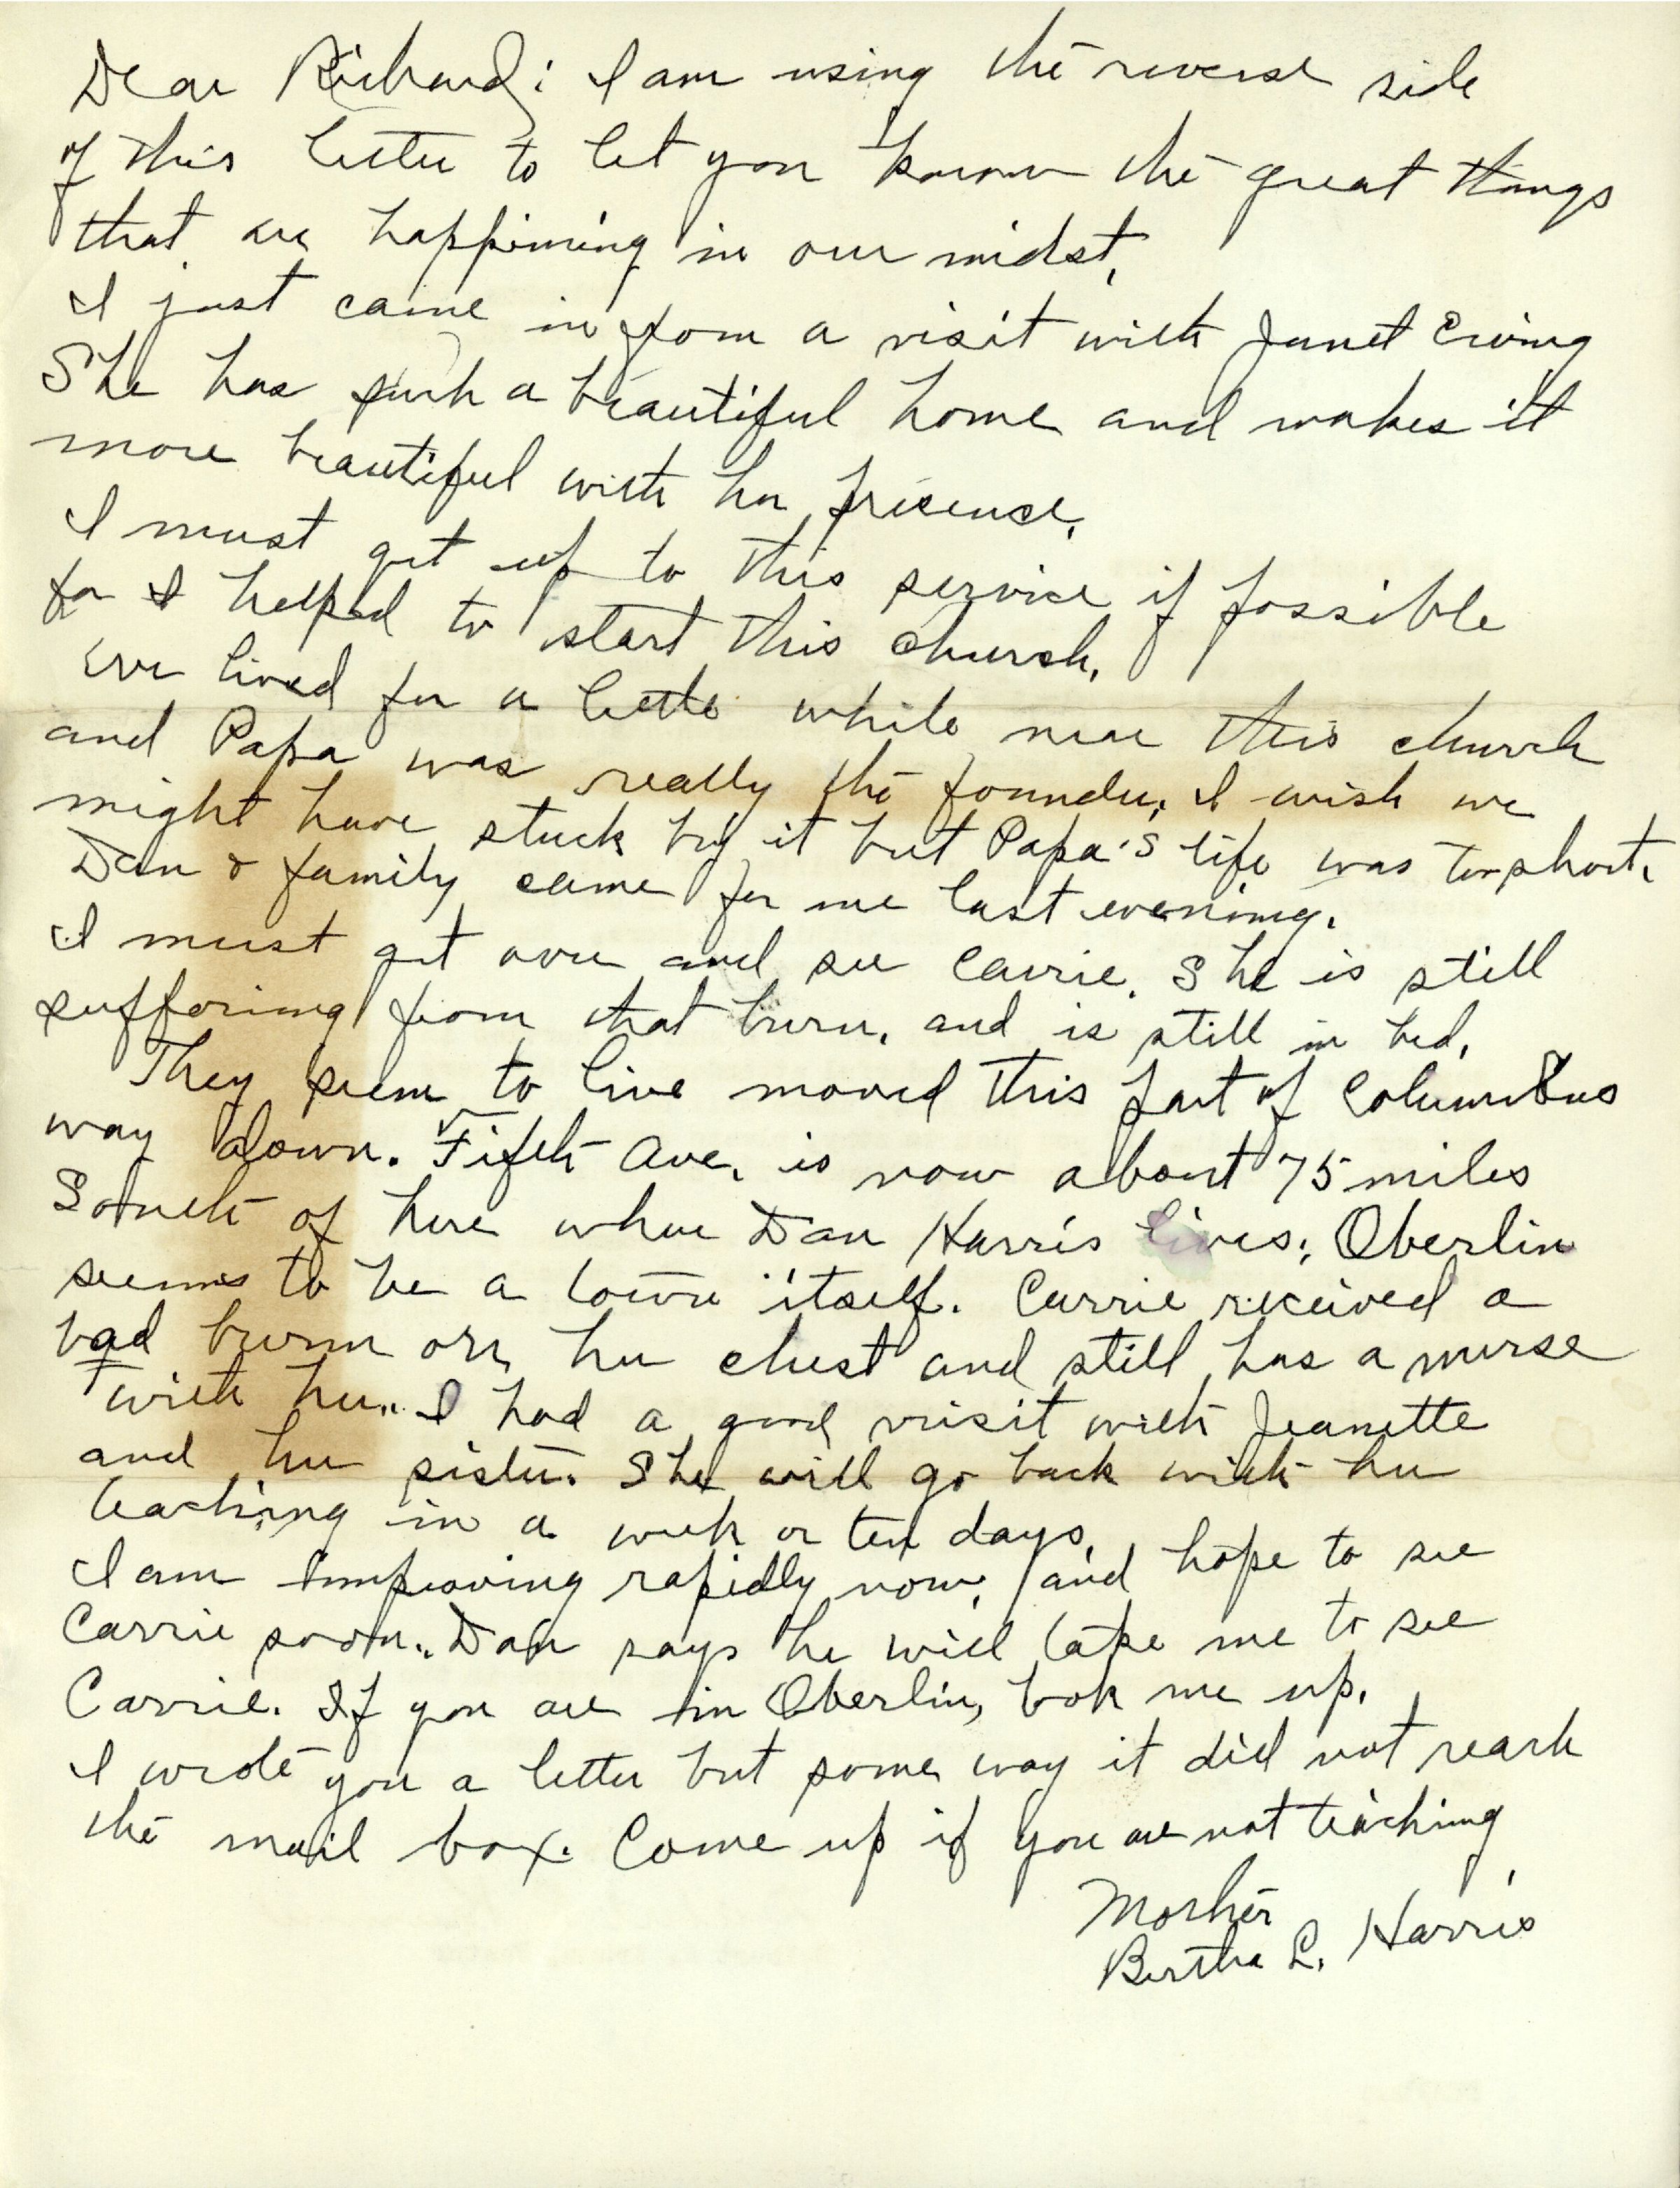 Dear Richard: I am using the reverse side
of this letter to let you know the great things
that are happining in our midst,
I just came in from a visit with Janet Ewing
She has such a beautiful home and makes it
more beautiful with her presence.
I must get up to this service if possible
for I helped to start this church.
We lived for a little while near this church
and Papa was really the founder. I wish we
might have stuck by it but Papa's life was too short.
Dan & family came for me last evening.
I must get over and see Carrie. She is still
suffering from that burn, and is still in bed.
They seem to have moved this part of Columbus
way down. Fifth Ave. is now about 75 miles
South of here where Dan Harris lives; Oberlin
seems to be a town itself. Carrie received a
bad burn on her chest and still has a nurse
with her. I had a good visit with Jeanette
and her sister. She will go back with her
teaching in a week or ten days.
I am improving rapidly now, and hope to see
Carrie soon. Dan says he will take me to see
Carrie. If you are in Oberlin, look me up.
I wrote you a letter but some way it did not reach
the mail box. Come up if you are not teaching
Mother
Bertha L. Harris